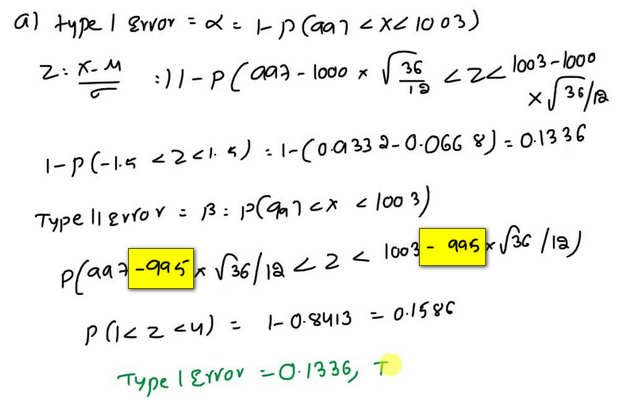 a) Type 1 Error = α = 1-P(997 < x < 1003)
Z: x-μ/σ :) 1 - P(997-1000 x √36/12 < Z < 1003-1000 x √36/12
1-P(-1.5 < Z < 1.5) = 1-(0.9332-0.0668) = 0.1336
Type II Error = β = P(997 < x < 1003)
P(997 -995 x √36/12 < Z < 1003 - 995 x √36/12)
P(1 < Z < 4) = 1-0.8413 = 0.1586
Type 1 Error = 0.1336, T